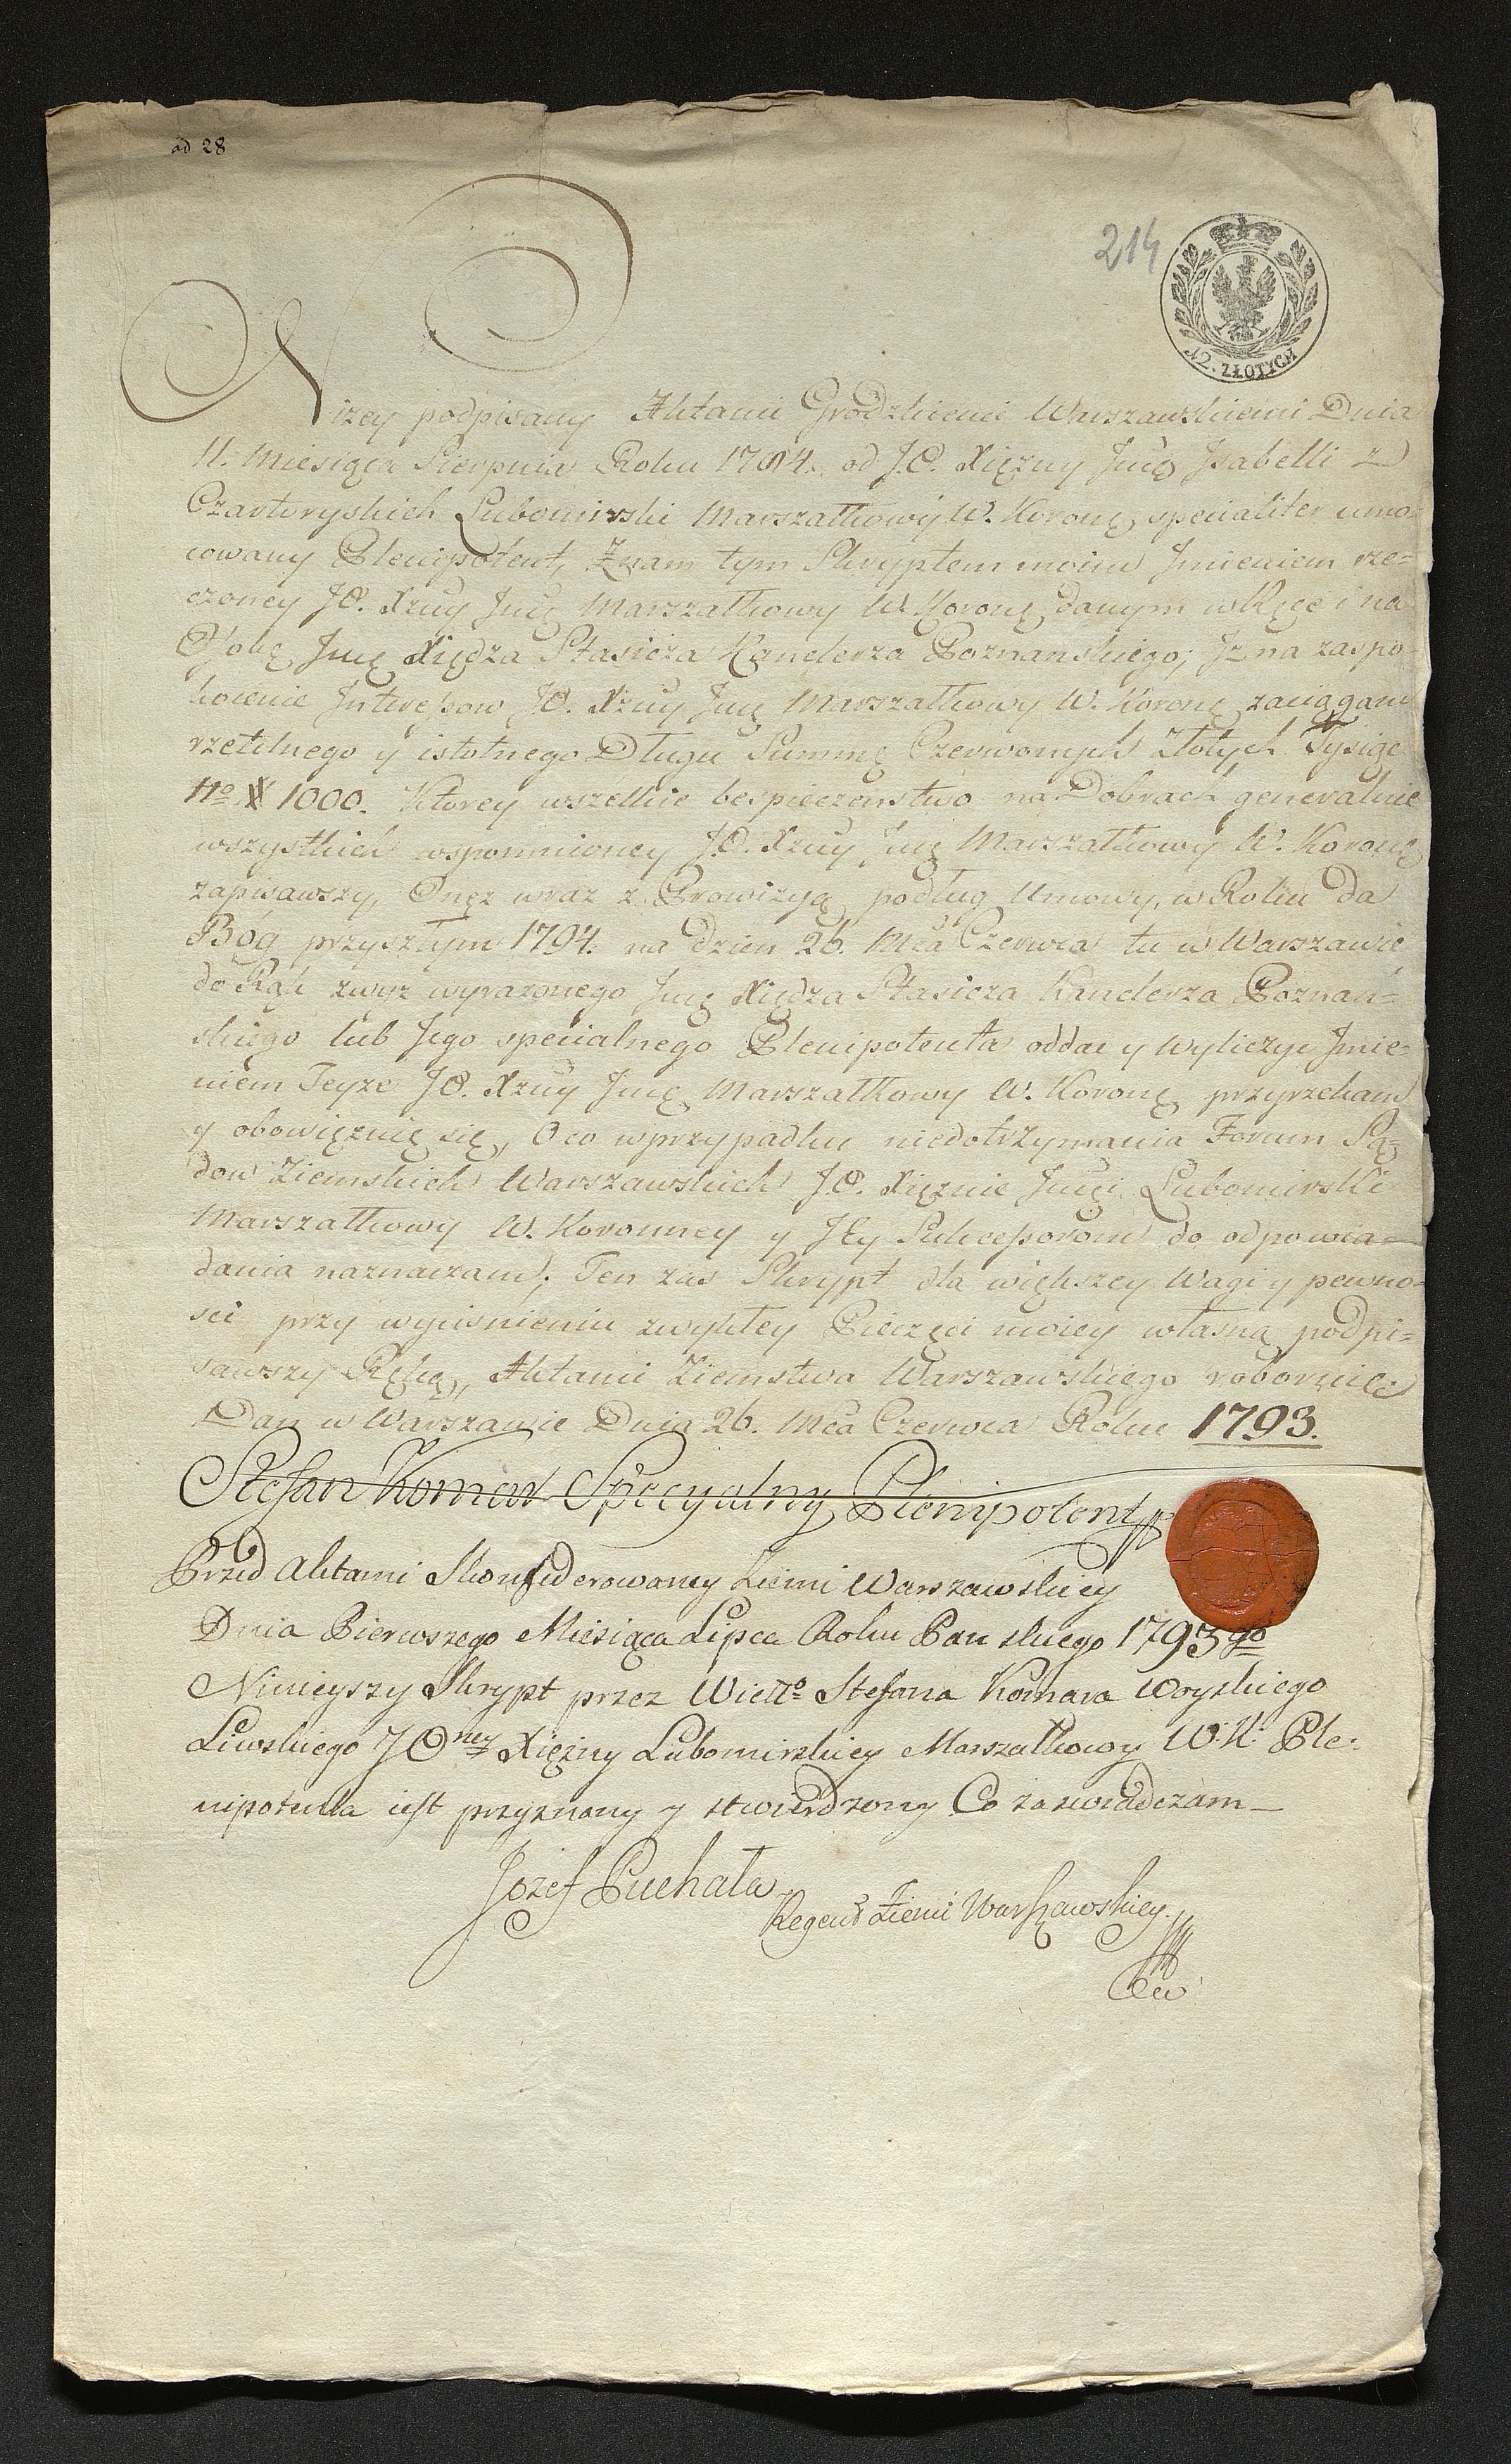 ad 28
214
12. ZŁOTYCH
Nizey podpisany Aktami Grodzkiemi Warszawskiemi Dnia
11. Miesiąca Sierpnia Roku 1784. od J.O. Xięzny Jmę Jzabelli z
Czartoryskich Lubomirski Marszałkowy W. Koronę specialiter umo-
cowany Plenipotent, Znam tym Skryptem moim Jmieniem rze-
czoney JO. Xzny Jmę Marszałkowy W. Koronę danym w Ręce i na
Osobę Jmę Xiędza Stasicza Kanclerza Poznanskiego; Jz na zaspo-
koienie Jnteressow JO. Xzny Jmę Marszałkowy W. Koronę zaciągam
rzetelnego y istotnego Długu Summę Czerwonych Złotych Tysiąc
No # 1000. Ktorey wszelkie bespieczenstwo na Dobrach generalnie
wszystkich wspomnioney J.O. Xzny Jmę Marszałkowy W. Koronę
zapisawszy, Onęz wraz z Prowizyą podług Umowy, w Roku da
Bóg przyszłym 1794. na dzien 26. Mca Czerwca tu w Warszawie
do Rąk zwyz wyrazonego Jmę Xiędza Stasicza Kanclerza Poznan-
skiego lub Jego specialnego Plenipotenta oddac y wyliczyc Jmie-
niem Teyze JO. Xzny Jmę Marszałkowy W. Koronę przyrzekam
y obowięznię się, O co w przypadku niedotrzymania Forum Są-
dow Ziemskich Warszawskich J.O. Xięznie Jmęi Lubomirski
Marszałkowy W. Koronney y JEy Sukcessorom do odpowia-
dania naznaczam; Ten zas Skrypt dla większey Wagi y pewno-
sci przy wycisnieniu zwykłey Pieczęci moiey własną podpi-
sawszy Ręką, Aktami Ziemstwa Warszawskiego roboruię
Dan w Warszawie Dnia 26. Mca Czerwca Roku 1793.
Stefan Komar Specyalny Plenipotent
Przed Aktami Skonfederowaney Ziemi Warszawskiey
Dnia Pierwszego Miesiąca Lipca Roku Panskiego 1793go
Ninieyszy Skrypt przez Wielło Stefana Komara Woyskiego
Liwskiego JOney Xięzny Lubomirskiey Marszałkowy W.K. Ple-
nipotenta iest przyznany y stwierdzony Co zaswiadczam_
Jozef Puchała
Regent Ziemi Warszawskiey.